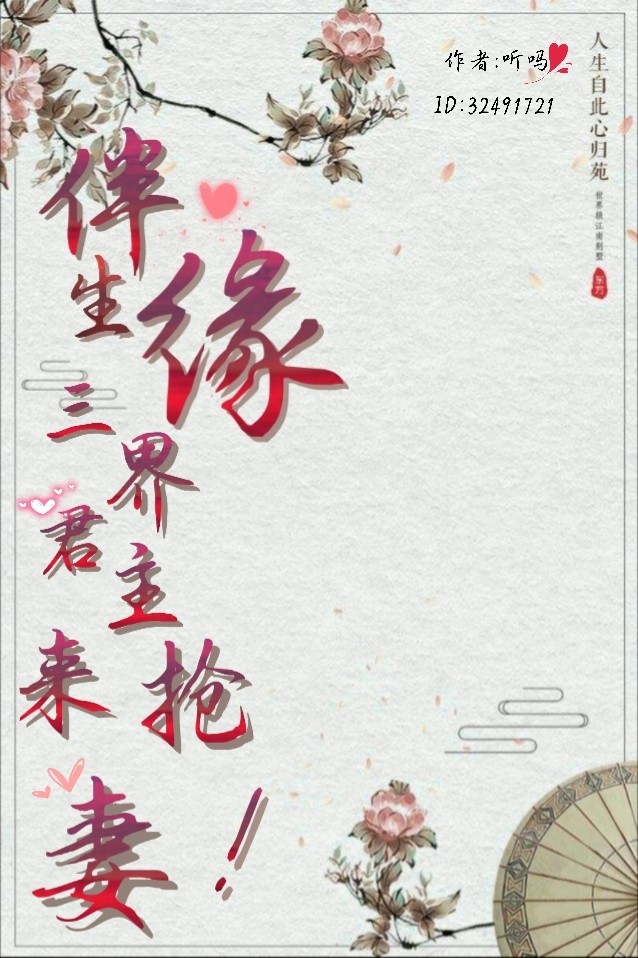 伴生缘
三界君主来抢妻！
作者:听吗
ID:32491721
人生自此心归苑
世界级江南别墅
东方